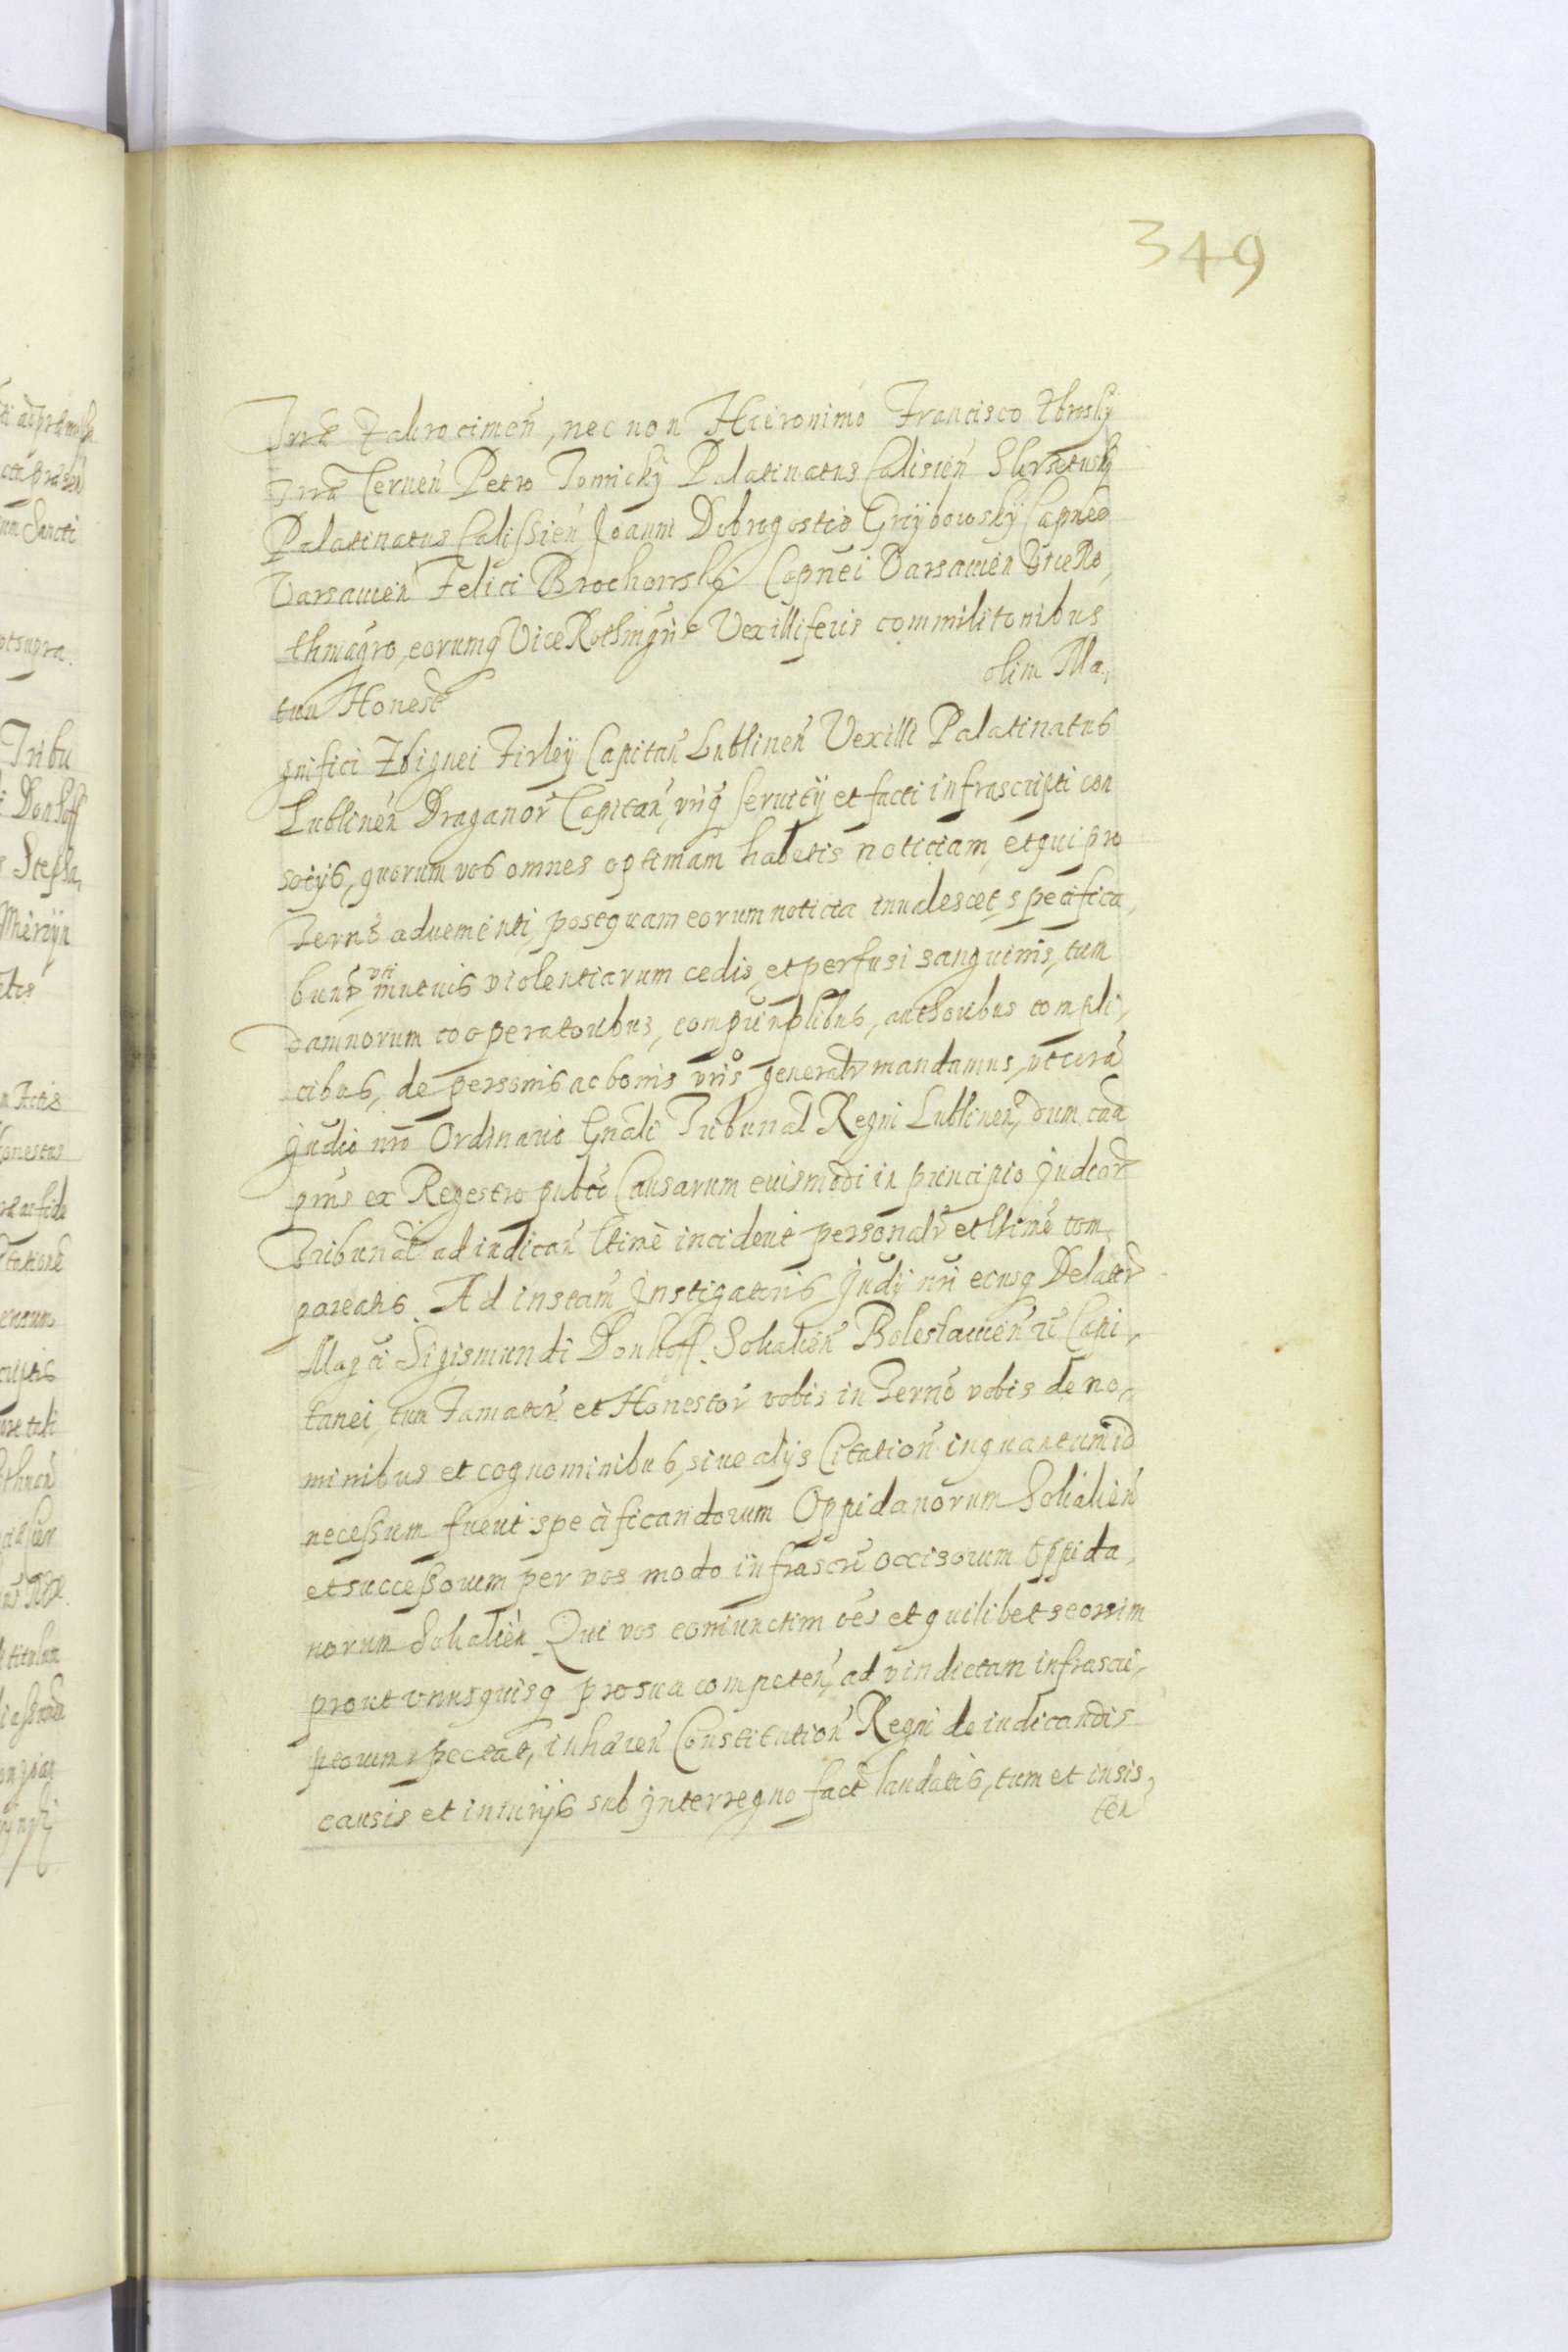 349
Trrae Zakrocimen̄, nec non Hieronimo Francisco Zbroski
Trrae Cernen̄ Petro Tomicky Palatinatus Calisien̄
Palatinatus Calissien̄ Joanni Dobrogostio Grzybowsky Capneo
Varsavien̄ Felici Brochowsky Capnei Varsavien̄ Vice Ro,
thmagro, eorumq Vice Rothmgris Vexilliferis commilitonibus
tum Honest olim Ma,
gnifici Zbignei Firleÿ Capitan̄ Lublinen̄ Vexilli Palatinatus
Lublinen̄ Draganor̄ Capitan̄, vriq servitÿ et facti infrascripti con
socÿs, quorum vos omnes optimam habetis noticiam, et qui pro
Terno advementi, postquam eorum noticia invalescet, specifica,
bunr vti mutuis violentiarum cedis, et perfusi sanguinis, tum
damnorum cooperatoribus, comprinplibus, authoribus compli,
cibus, de personis ac bonis vris generalr mandamus, vt corā
Judio nro Ordinario Gnali Tribunal Regni Lublinen̄, dum cā
prns ex Regestro pubco Causarum euismodi in principio Judior
Tribunal ad iudican̄ ltime inciderit personalr et ltime com,
pareatis. Ad instam̄ Instigatoris Judÿ nri eiusq Delator
Magci Sigismundi Donhoff Sokalien̄ Boleslavien̄ zc Capi,
tanei, tum Famator̄ et Honestor̄ vobis in Terno vobis de no,
minibus et cognominibus, sive alÿs Citation̄ inquantum id
necessum fuerit specificandorum Oppidanorum Sokalien̄
et successorum per vos modo infrascr̄ occisorum Oppida,
norum Sokalien̄. Qui vos coniunctim oes et quilibet seorsim
prout vnusquisq pro sua competen̄, ad vindictam infrascri,
ptorum spectat, inhaeren̄ Constitution̄ Regni de iudicandis
causis et iniurÿs sub Interregno fact laudatis, tum et insis,
ten̄